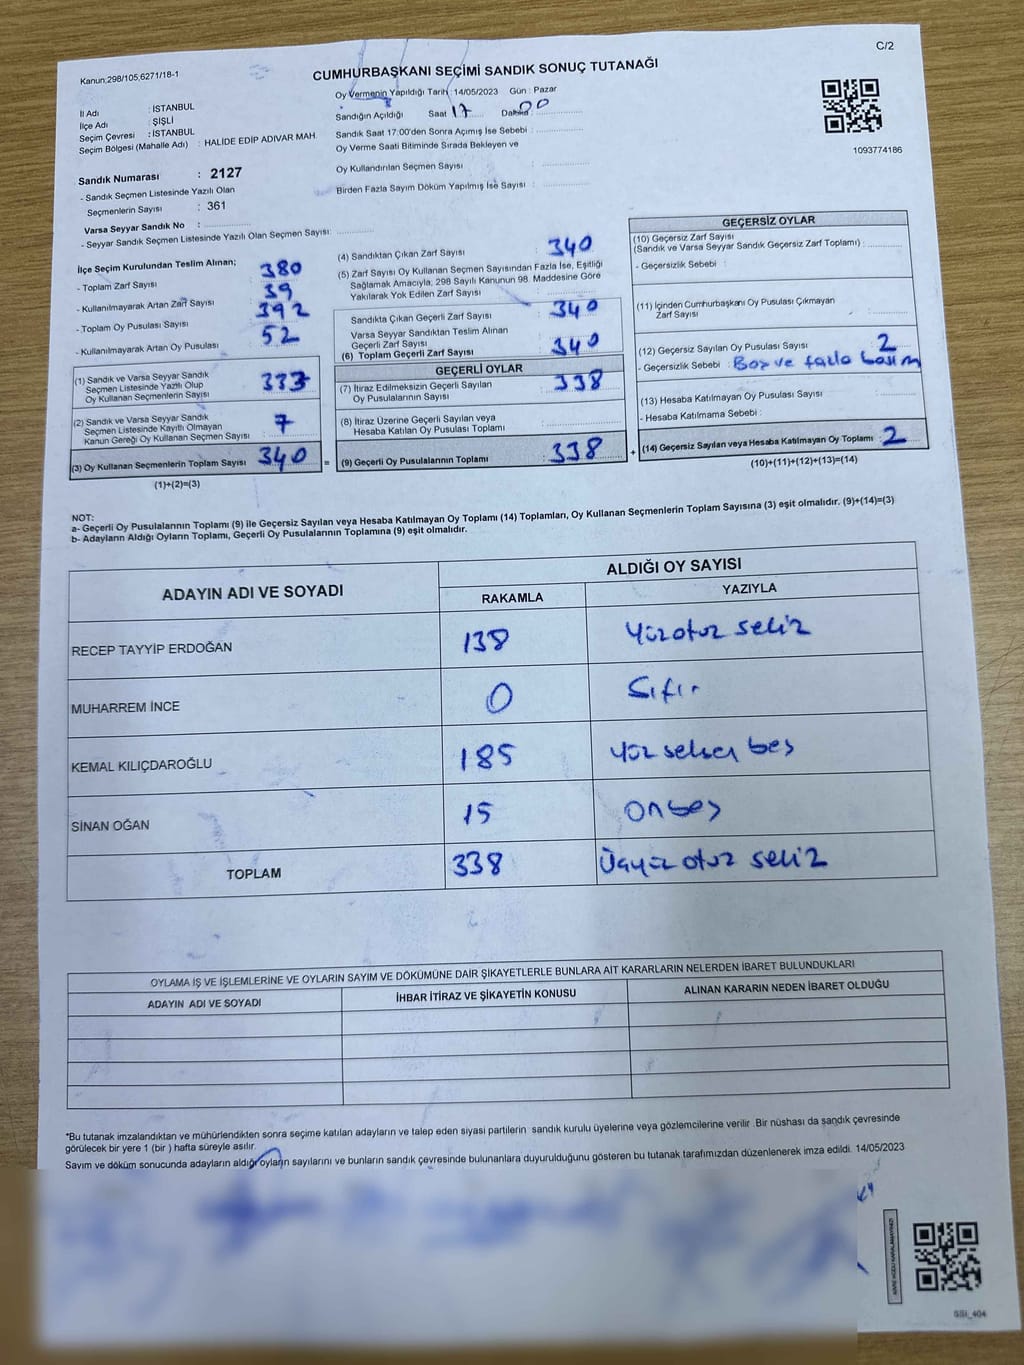 C/2
Kanun,298/105,6271/18-1
CUMHURBAŞKANI SEÇİMİ SANDIK SONUÇ TUTANAĞI
Oy Vermenin Yapıldığı Tarih : 14/05/2023 Gün : Pazar
İl Adı : İSTANBUL
İlçe Adı : ŞİŞLİ
Seçim Çevresi : İSTANBUL
Seçim Bölgesi (Mahalle Adı) : HALİDE EDİP ADIVAR MAH.
Sandığın Açıldığı Saat 17 Dakika 00
Sandık Saat 17:00'den Sonra Açımış İse Sebebi :
Oy Verme Saati Bitiminde Sırada Bekleyen ve
Oy Kullandırılan Seçmen Sayısı :
Birden Fazla Sayım Döküm Yapılmış İse Sayısı :
1093774186
Sandık Numarası : 2127
- Sandık Seçmen Listesinde Yazılı Olan
Seçmenlerin Sayısı : 361
Varsa Seyyar Sandık No :
- Seyyar Sandık Seçmen Listesinde Yazılı Olan Seçmen Sayısı:
İlçe Seçim Kurulundan Teslim Alınan;
- Toplam Zarf Sayısı : 380
- Kullanılmayarak Artan Zarf Sayısı : 39
- Toplam Oy Pusulası Sayısı : 392
- Kullanılmayarak Artan Oy Pusulası : 52
(1) Sandık ve Varsa Seyyar Sandık
Seçmen Listesinde Yazılı Olup
Oy Kullanan Seçmenlerin Sayısı : 333
(2) Sandık ve Varsa Seyyar Sandık
Seçmen Listesinde Kayıtlı Olmayan
Kanun Gereği Oy Kullanan Seçmen Sayısı : 7
(3) Oy Kullanan Seçmenlerin Toplam Sayısı : 340 =
(1)+(2)=(3)
(4) Sandıktan Çıkan Zarf Sayısı : 340
(5) Zarf Sayısı Oy Kullanan Seçmen Sayısından Fazla İse, Eşitliği
Sağlamak Amacıyla, 298 Sayılı Kanunun 98. Maddesine Göre
Yakılarak Yok Edilen Zarf Sayısı :
Sandıkta Çıkan Geçerli Zarf Sayısı : 340
Varsa Seyyar Sandıktan Teslim Alınan
Geçerli Zarf Sayısı :
(6) Toplam Geçerli Zarf Sayısı : 340
GEÇERLİ OYLAR
(7) İtiraz Edilmeksizin Geçerli Sayılan
Oy Pusulasının Sayısı : 338
(8) İtiraz Üzerine Geçerli Sayılan veya
Hesaba Katılan Oy Pusulası Toplamı :
(9) Geçerli Oy Pusulalarının Toplamı : 338 +
GEÇERSİZ OYLAR
(10) Geçersiz Zarf Sayısı
(Sandık ve Varsa Seyyar Sandık Geçersiz Zarf Toplamı) :
- Geçersizlik Sebebi :
(11) İçinden Cumhurbaşkanı Oy Pusulası Çıkmayan
Zarf Sayısı :
(12) Geçersiz Sayılan Oy Pusulası Sayısı : 2
- Geçersizlik Sebebi : Boş ve fazla basım
(13) Hesaba Katılmayan Oy Pusulası Sayısı :
- Hesaba Katılmama Sebebi :
(14) Geçersiz Sayılan veya Hesaba Katılmayan Oy Toplamı : 2
(10)+(11)+(12)+(13)=(14)
NOT:
a- Geçerli Oy Pusulalarının Toplamı (9) ile Geçersiz Sayılan veya Hesaba Katılmayan Oy Toplamı (14) Toplamları, Oy Kullanan Seçmenlerin Toplam Sayısına (3) eşit olmalıdır. (9)+(14)=(3)
b- Adayların Aldığı Oyların Toplamı, Geçerli Oy Pusulalarının Toplamına (9) eşit olmalıdır.
ADAYIN ADI VE SOYADI
ALDIĞI OY SAYISI
RAKAMLA YAZIYLA
RECEP TAYYİP ERDOĞAN 138 Yüzotuz sekiz
MUHARREM İNCE 0 Sıfır
KEMAL KILIÇDAROĞLU 185 Yüz seksen beş
SİNAN OĞAN 15 Onbeş
TOPLAM 338 Üçyüz otuz sekiz
OYLAMA İŞ VE İŞLEMLERİNE VE OYLARIN SAYIM VE DÖKÜMÜNE DAİR ŞİKAYETLERLE BUNLARA AİT KARARLARIN NELERDEN İBARET BULUNDUKLARI
ADAYIN ADI VE SOYADI İHBAR İTİRAZ VE ŞİKAYETİN KONUSU ALINAN KARARIN NEDEN İBARET OLDUĞU
*Bu tutanak imzalandıktan ve mühürlendikten sonra seçime katılan adayların ve talep eden siyasi partilerin sandık kurulu üyelerine veya gözlemcilerine verilir. Bir nüshası da sandık çevresinde
görülecek bir yere 1 (bir ) hafta süreyle asılır.
Sayım ve döküm sonucunda adayların aldığı oyların sayılarını ve bunların sandık çevresinde bulunanlara duyurulduğunu gösteren bu tutanak tarafımızdan düzenlenerek imza edildi. 14/05/2023